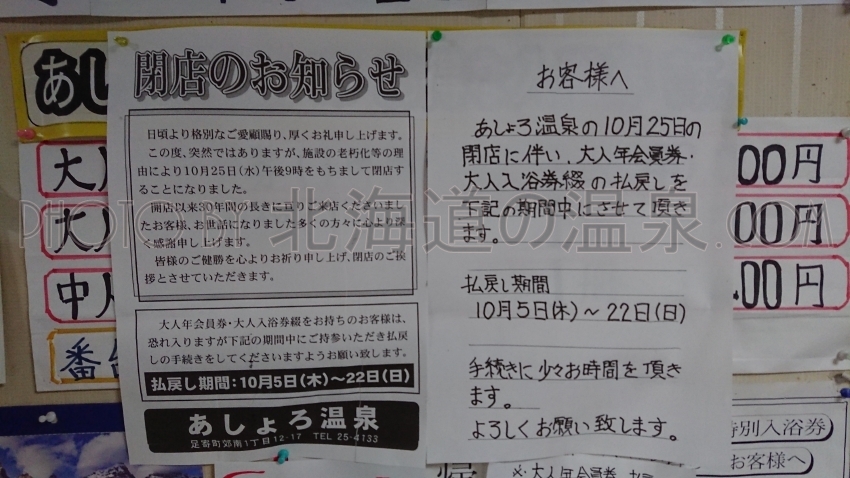 閉店のお知らせ
日頃より格別なご愛顧賜り、厚くお礼申し上げます。
この度、突然ではありますが、施設の老朽化等の理
由により10月25日(水)午後9時をもちまして閉店す
ることになりました。
開店以来30年間の長きに亘りご来店くださいまし
たお客様、お世話になりました多くの方々に心より深
く感謝申し上げます。
皆様のご健勝を心よりお祈り申し上げ、閉店のご挨
拶とさせていただきます。
大人年会員券・大人入浴券綴をお持ちのお客様は、
恐れ入りますが下記の期間中にご持参いただき払戻
しの手続きをしてくださいますようお願い致します。
払戻し期間：10月5日(木)～22日(日)
あしょろ温泉
足寄町郊南1丁目12-17 TEL 25-4133
お客様へ
あしょろ温泉の10月25日の
閉店に伴い、大人年会員券・
大人入浴券綴の払戻しを
下記の期間中にさせて頂き
ます。
払戻し期間
10月5日(木)～22日(日)
手続きに少々お時間を頂き
ます。
よろしくお願い致します。
あし
大人
大人
中人
番台
00円
00円
.00円
特別入浴券
お客様へ
※大人年会員券
PHOTO BY 北海道の温泉.COM